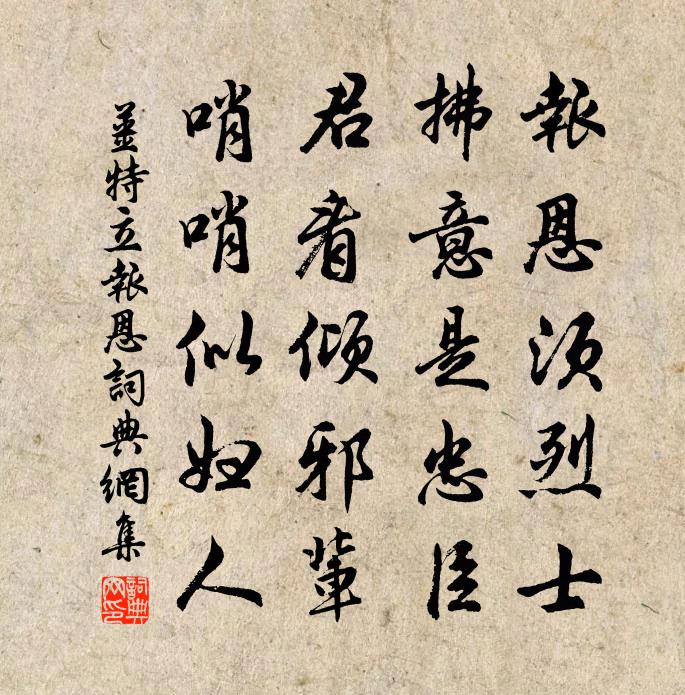 報恩須烈士
拂意是忠臣
君看傾邪輩
哨哨似婦人
姜特立報恩詞典網集
詞典網印